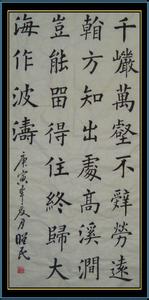 千巖萬壑不辭勞遠
方知出處高溪澗
豈能畱得住終歸大
海作波濤
庚寅年夏月民